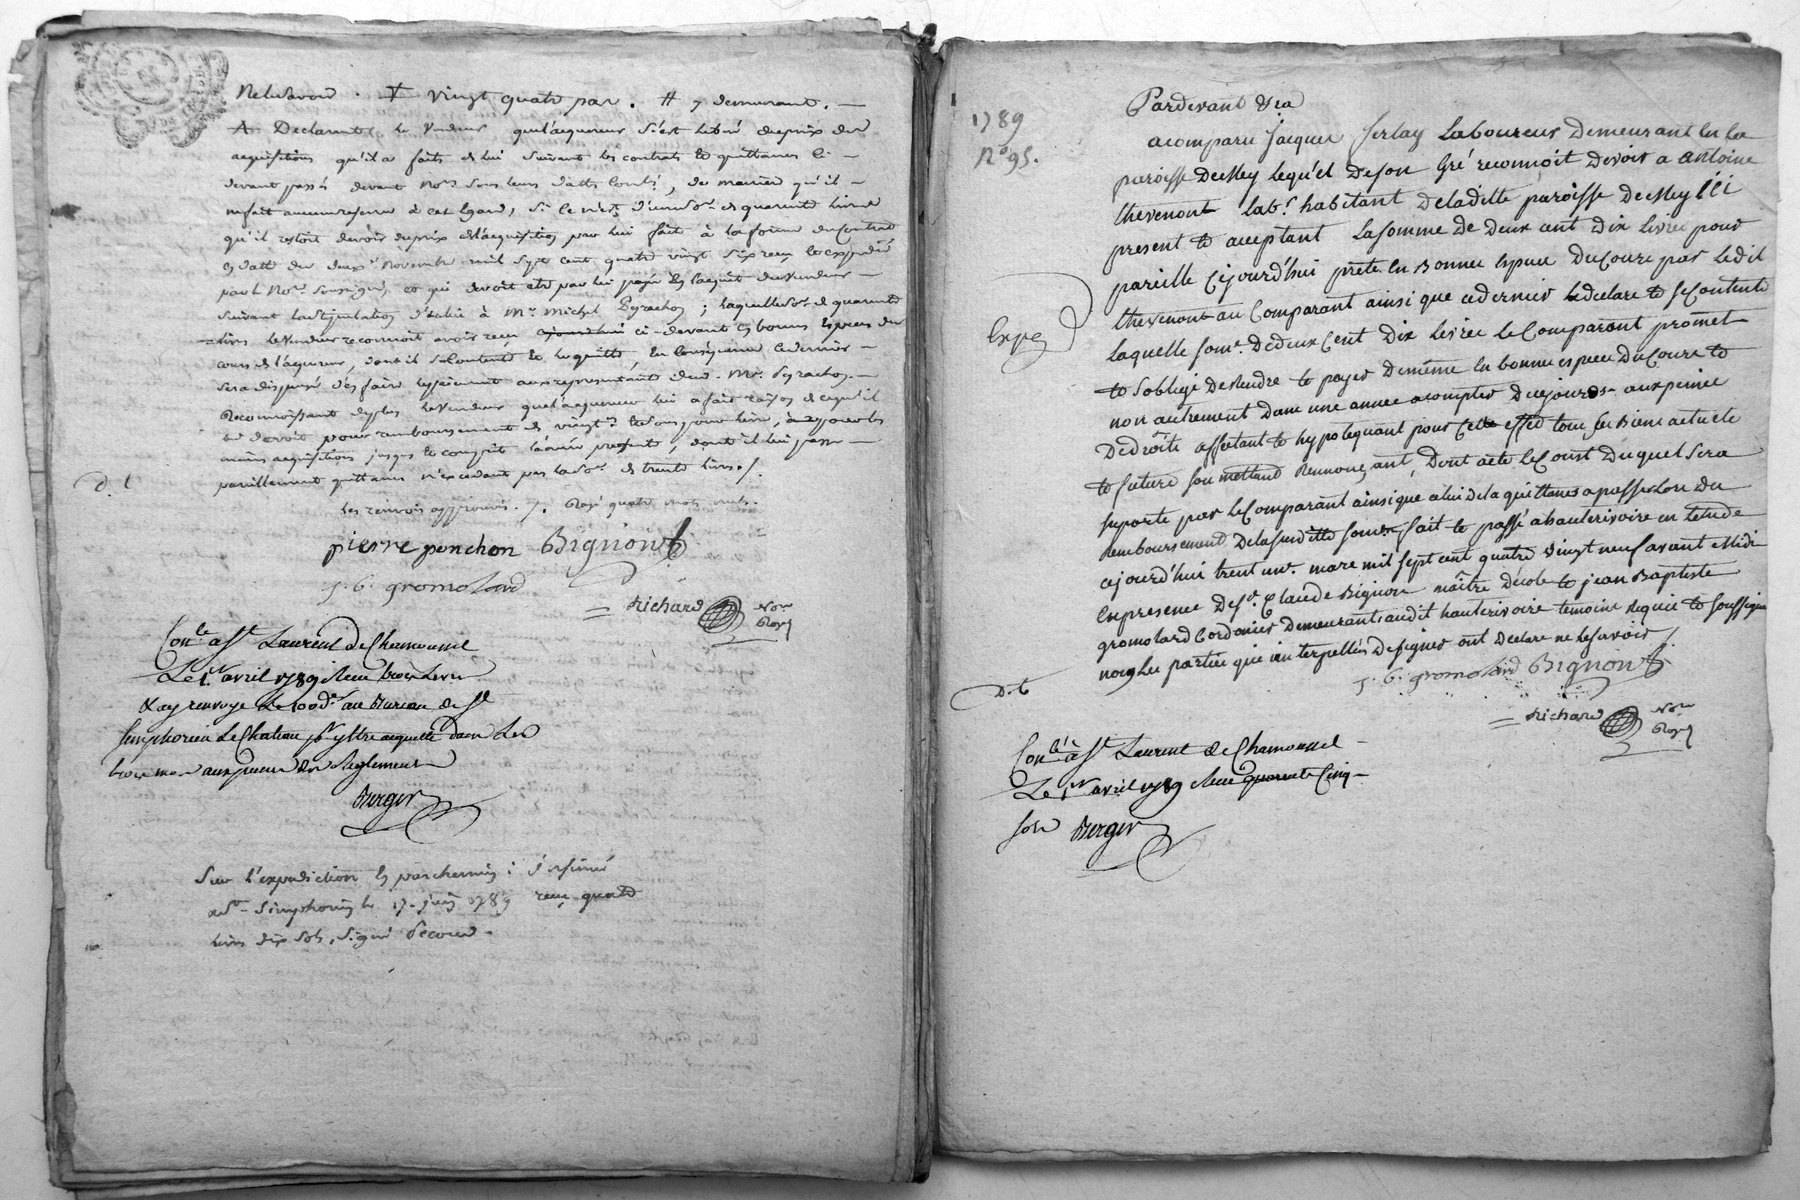 Vingt quatre par . # y demeurant . —
A Declarant le vendeur que l'acquereur s'est libéré du prix des
acquisitions qu'il a faits de lui suivant les contrats et quittances ci —
devant passés devant No.re sous leurs dattes , de manière qu'il —
n'a fait aucune reserve à cet egard, si ce n'est d'une so.e de quarante livres
qu'il restoit devoir du prix de l'acquisition par lui faite à la forme du Contrat
en datte du deux Novembre mil sept cent quatre vingt six reçu et expedié
par le No.re soussigné, ce qui devoit etre par lui payé en l'acquit du vendeur —
suivant la stipulation d'icelui à M.r Michel Peyrachon ; laquelle so.e de quarante
livres le vendeur reconnoit avoir reçu ci-devant en bonnes Especes du
cours de l'acquereur, dont il se contente et le quitte, en consequence ce dernier —
sera dispensé d'en faire le payement aux representants dud. M.r Peyrachon. —
Reconnoissant de plus le vendeur que l'acquereur lui a fait raison de ce qu'il
lui devoit pour remboursement de vingt.e
acquisitions jusques et compris l'année presente , dont il lui passe —
pareillement quittance n'excedant pas la so.e de trente livres ./.
les renvois approuvés . /. Rayé quatre mots nuls .
pierre ponchon Bignon
J. B. gromolard
= Richard No.re Royal
Con.lé à S.t Laurent de Chamousset
Le 1.er avril 1789 Reçu trois livres
& ay renvoyé le 100.e d.er au Bureau de S.t
Simphorien le Chateau p.r y etre acquitté dans les
trois mois aux peines des Reglements
Berger
Sur l'expedition en parchemin : insinué
à S.t Simphorien le 17 juin 1789 reçu quatre
livres dix sols, signé Decoeur .
1789
N.o 95.
Pardevant &ca
a comparu Jacques ferlay Laboureur Demeurant en la
paroisse De Mey lequ'el De son Gré reconnoit Devoir a antoine
thevenont Lab.r habitant De la ditte paroisse De Mey ici
present et acceptant La somme De Deux cent Dix Livres pour
pareille Cejourd'hui prêté en Bonnes especes Du Cours par Ledit
Expé
thevenont au Comparant ainsi que ce dernier le declare et se Contente
laquelle som.e De deux Cent Dix Livres Le Comparant promet
et s'oblige De Rendre et payer De même en bonnes especes Du Cours et
non autrement Dans une année a compter De ce jour aux peines
De droits affectant et hypotequant pour Cet effet tous ses Biens actuels
et futurs soumettant Rennonçant, Dont acte le Cout Duquel sera
suporté par le Comparant ainsi que celui de la quittance a passer lors du
Remboursement De la susditte somme fait et passé a hauterivoire en l'etude
cejourd'hui trent un.e mars mil sept cent quatre vingt neuf avant Midi
En presence De s.r Claude Bignon maitre d'école et jean Baptiste
gromolard Cordonnier Demeurants audit hauterivoire temoins Requis et soussignés
non les parties qui interpellés De signer ont Declaré ne le savoir /.
J. B. gromolard Bignon
= Richard No.re Royal
Con.lé à S.t Laurent de Chamousset —
Le 1.er avril 1789 Reçu quarente Cinq —
sols Berger